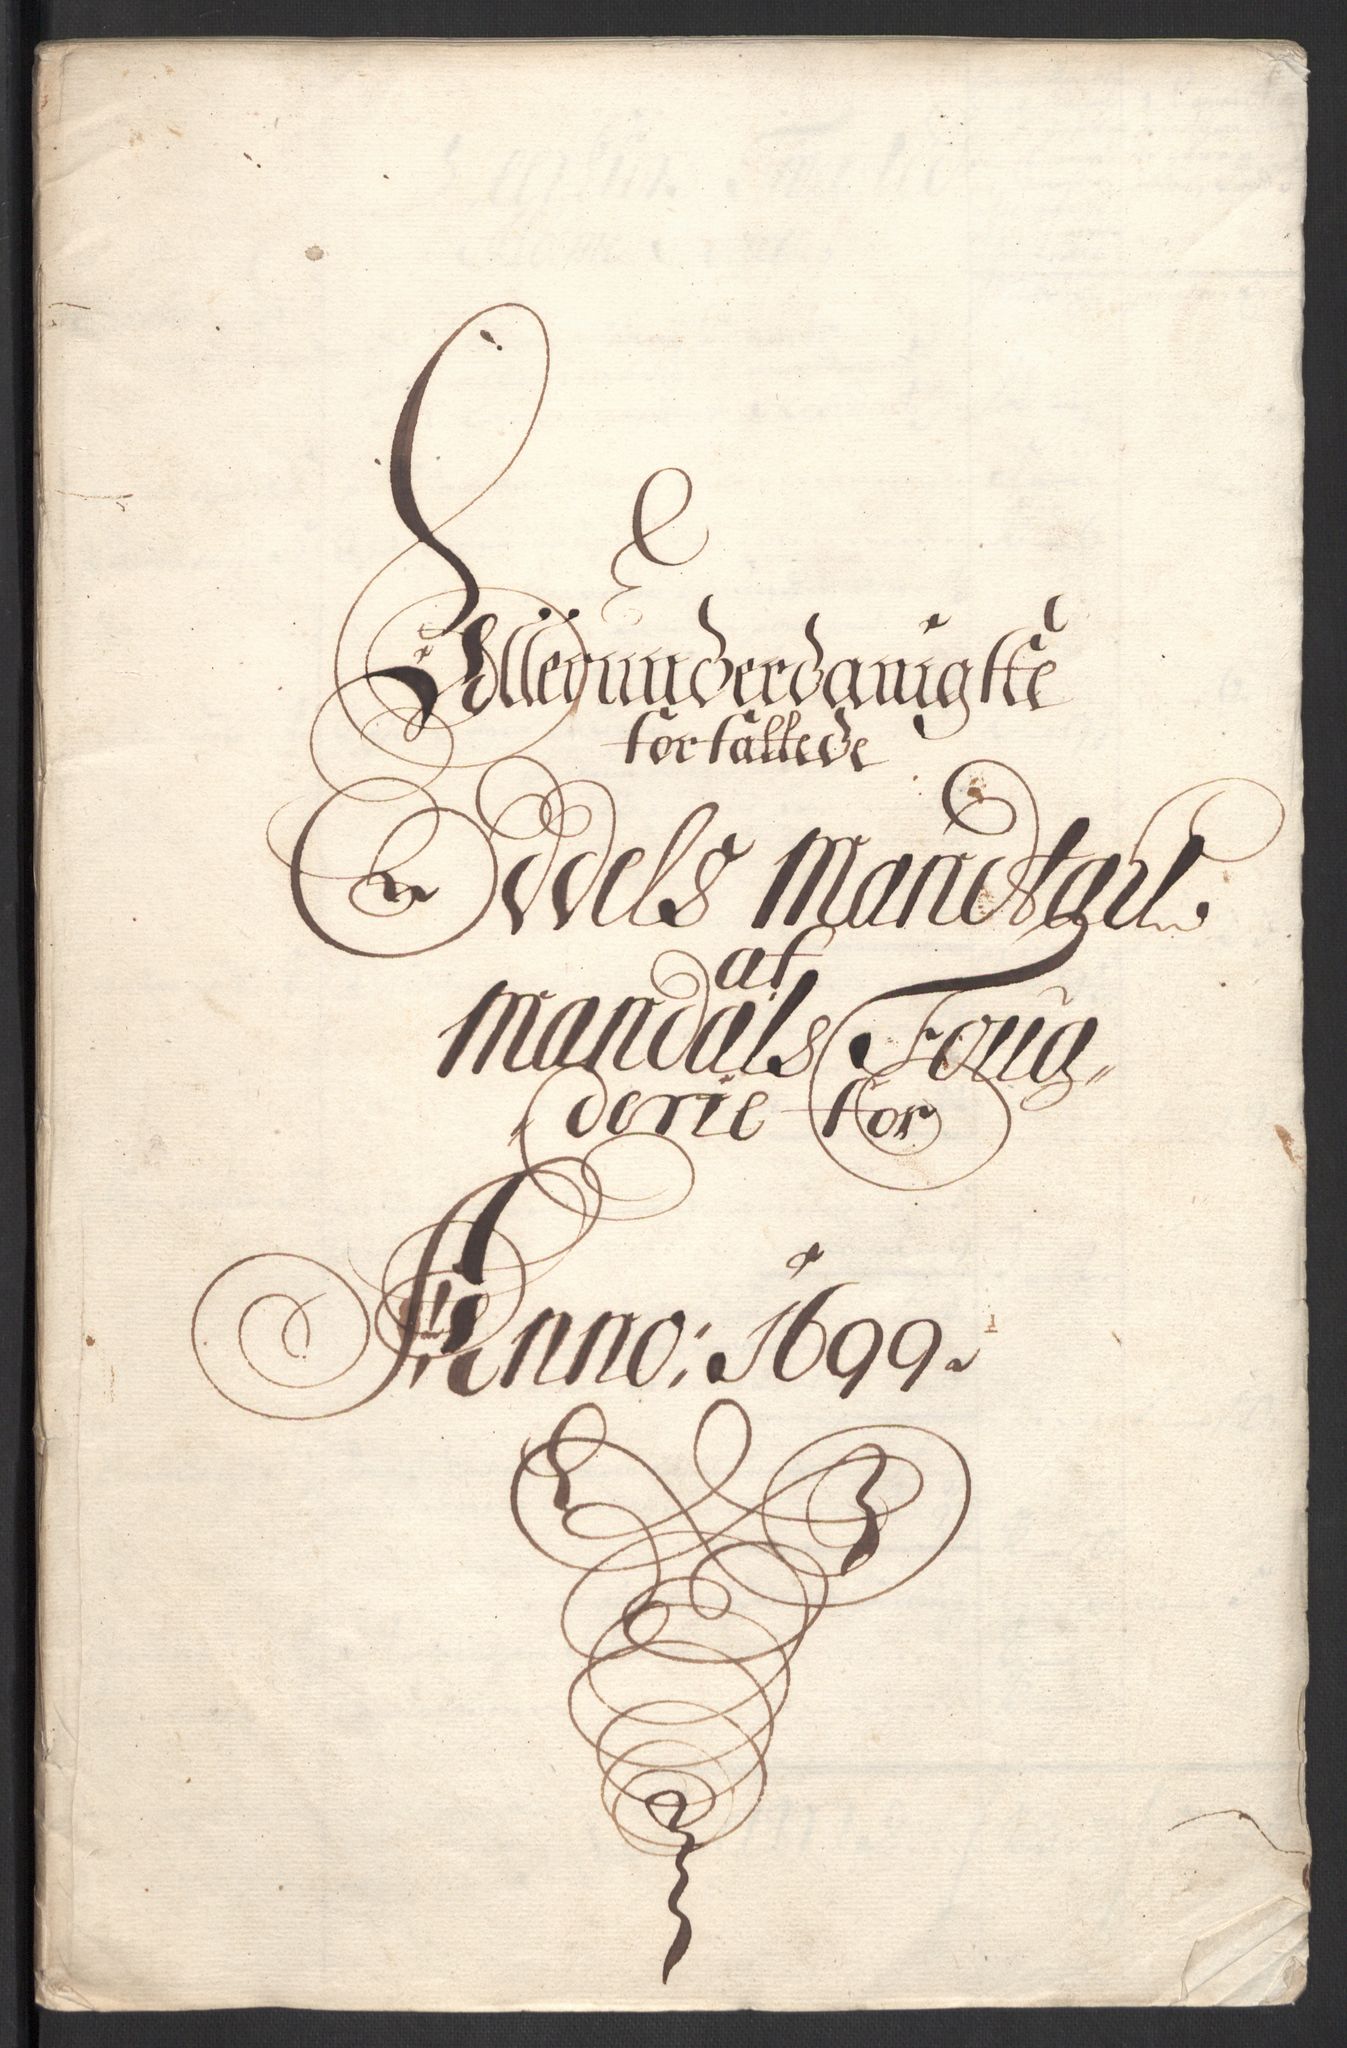 Allerunderdanigste
forfattede
Oddels Mandtall
af
Mandals Foug
derie for
Anno: 1699.